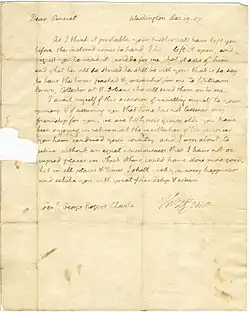 Dear General Washington Dec. 19. 07
As I think it probable your brother will have left you
before the inclosed comes to hand, I have left it open, and
request you to read it and do for me what it asks of him
and what he will do should he still be with you. that is to say
to have the bones packed & forwarded for me to William
Brown, Collector at N. Orleans who will send them on to me.
I avail myself of this occasion of recalling myself to your
memory, & of assuring you that time has not lessened my
friendship for you. we are both now grown old. you have
been enjoying in retirement the recollection of the services
you have rendered your country, and I am about to
retire without an equal consciousness that I have not oc-
cupied places in which others would have done more good.
but in all places & times I shall wish you every happiness
and salute you with great friendship & esteem.
Genl. George Rogers Clarke